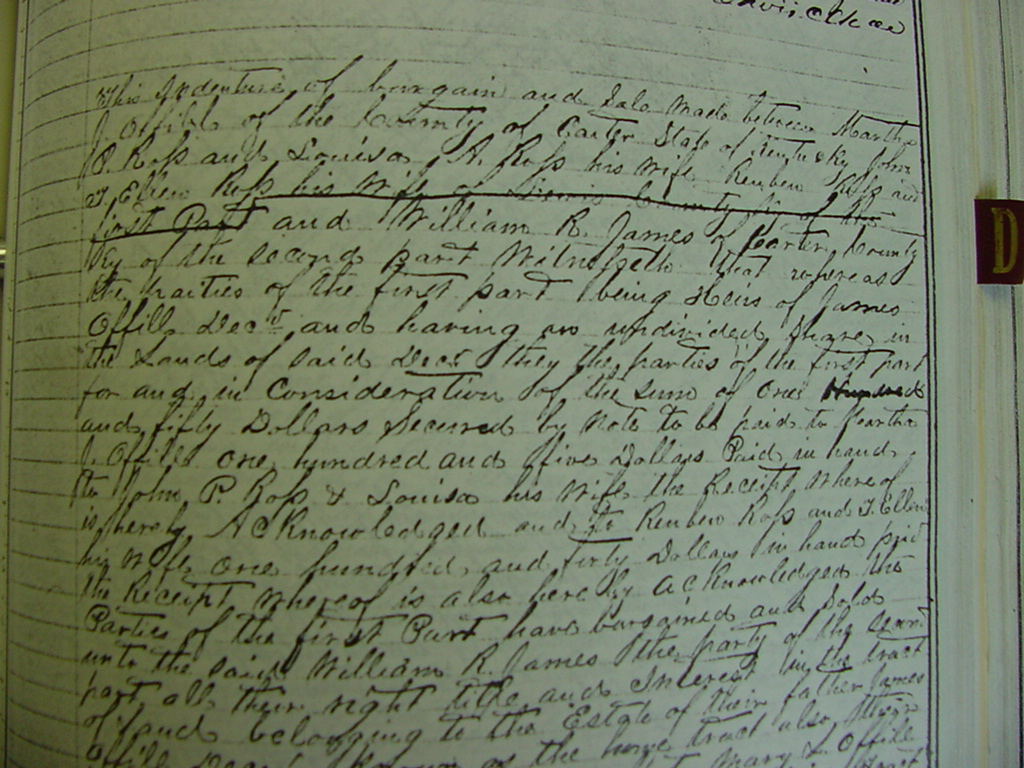 This Indenture of bargain and Sale Made between Martha
J. Offill of the County of Carter State of Kentucky John
P. Ross and Louisa A. Ross his Wife Reuben Ross and
T. Ellen Ross his Wife of Lewis County Ky of the
first Part and William R. James of Carter County
Ky of the second part Witnesseth that whereas
the parties of the first part being Heirs of James
Offill Decd and having an undivided Share in
the Lands of said Decd they the parties of the first part
for and in Consideration of the sum of One Hundred
and fifty Dollars Secured by Note to be paid to Martha
J. Offill One hundred and five Dollars Paid in hand
to John P. Ross & Louisa his Wife the Receipt Where of
is hereby Acknowledged and to Reuben Ross and T. Ellen
his Wife One hundred and forty Dollars in hand paid
the Receipt Whereof is also hereby Acknowledged the
Parties of the first Part have bargained and Sold
unto the said William R. James the party of the Second
part all their right title and Interest in the tract
of land belonging to the Estate of their father James
Offill Decd Known as the large tract also their
Mary L. Offill
D